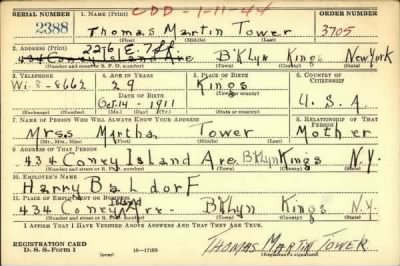 SERIAL NUMBER 1. NAME (Print) CDD-1-11-44 ORDER NUMBER
2388 Thomas Martin Tower 3705
(First) (Middle) (Last)
2276 E. 7th
2. ADDRESS (Print)
434 Coney Island Ave B'KLyn Kings New York
(Number and street or R. F. D. number) (Town) (County) (State)
3. TELEPHONE 4. AGE IN YEARS 5. PLACE OF BIRTH 6. COUNTRY OF CITIZENSHIP
29 Kings
DATE OF BIRTH (Town or county)
Oct. 14 - 1911 U. S. A.
(Exchange) (Number) (Mo.) (Day) (Yr.) (State or country)
7. NAME OF PERSON WHO WILL ALWAYS KNOW YOUR ADDRESS 8. RELATIONSHIP OF THAT PERSON
Mrss Martha Tower Mother
(Mr., Mrs., Miss) (First) (Middle) (Last)
9. ADDRESS OF THAT PERSON
434 Coney Island Are B'KLyn Kings N.Y.
(Number and street or R. F. D. number) (Town) (County) (State)
10. EMPLOYER'S NAME
Harry Baldorf
11. PLACE OF EMPLOYMENT OR BUSINESS Island
434 Coney B'KLyn Kings N.Y.
(Number and street or R. F. D. number) (Town) (County) (State)
I AFFIRM THAT I HAVE VERIFIED ABOVE ANSWERS AND THAT THEY ARE TRUE.
REGISTRATION CARD
D. S. S. Form 1 16-17105 Thomas Martin Tower
(Registrant's signature)